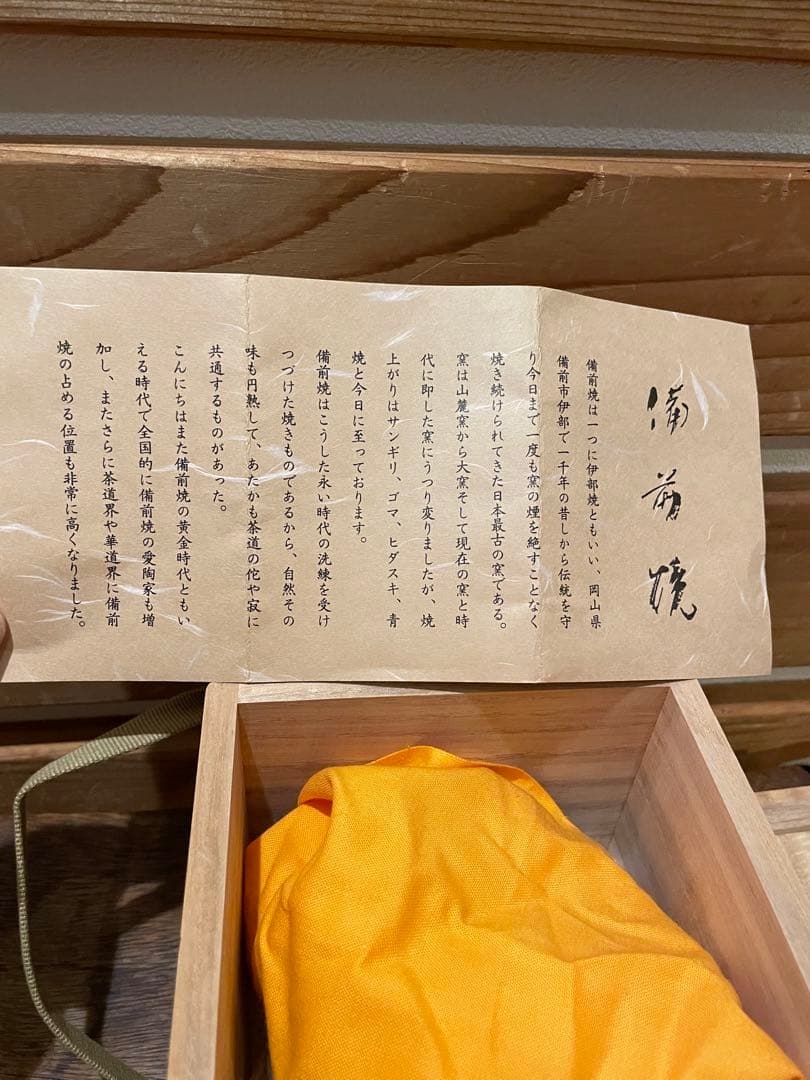 備前焼
備前焼は一つに伊部焼ともいい、岡山県
備前市伊部で一千年の昔しから伝統を守
り今日まで一度も窯の煙を絶すことなく
焼き続けられてきた日本最古の窯である。
窯は山麓窯から大窯そして現在の窯と時
代に即した窯にうつり変りましたが、焼
上がりはサンギリ、ゴマ、ヒダスキ、青
焼と今日に至っております。
備前焼はこうした永い時代の洗練を受け
つづけた焼きものであるから、自然その
味も円熟して、あたかも茶道の侘や寂に
共通するものがあった。
こんにちはまた備前焼の黄金時代ともい
える時代で全国的に備前焼の愛陶家も増
加し、またさらに茶道界や華道界に備前
焼の占める位置も非常に高くなりました。